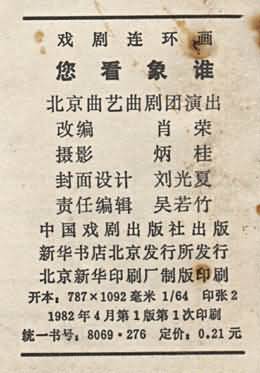 戏剧连环画
您看象谁
北京曲艺曲剧团演出
改编 肖荣
摄影 炳桂
封面设计 刘光夏
责任编辑 吴若竹
中国戏剧出版社出版
新华书店北京发行所发行
北京新华印刷厂制版印刷
开本：787×1092毫米 1/64 印张2
1982年4月第1版第1次印刷
统一书号：8069·276 定价：0.21元